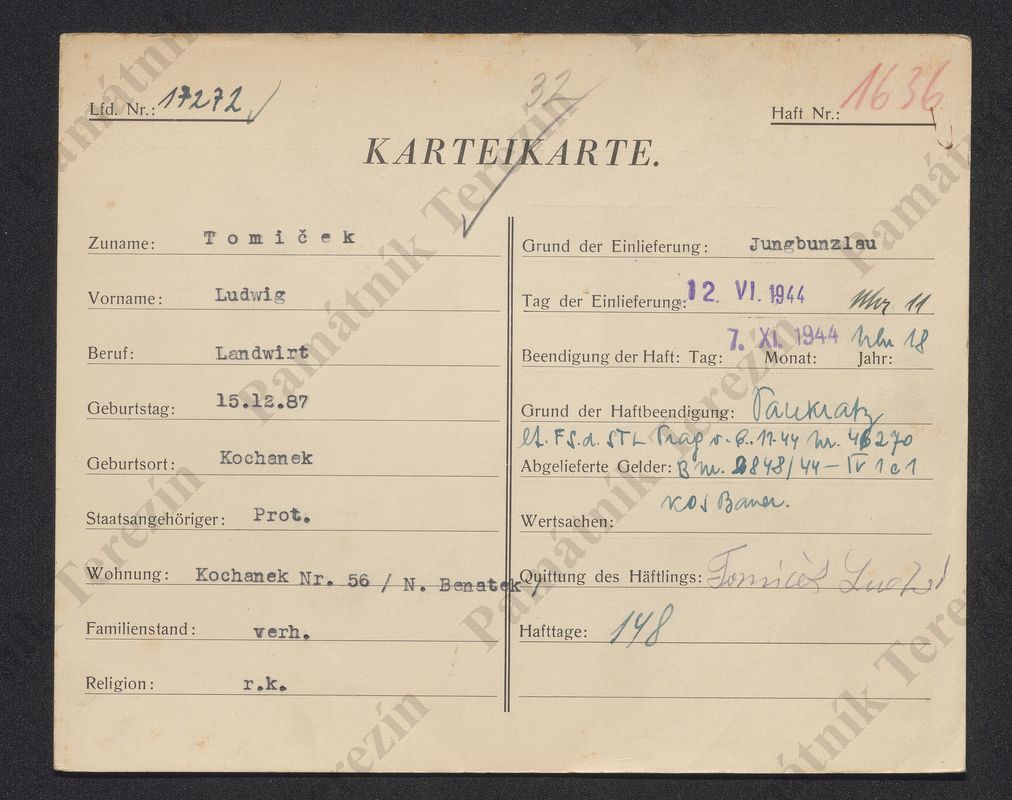 Lfd. Nr.: 17272
32
Haft Nr.: 1636
KARTEIKARTE.
Zuname: Tomiček
Vorname: Ludwig
Beruf: Landwirt
Geburtstag: 15.12.87
Geburtsort: Kochanek
Staatsangehöriger: Prot.
Wohnung: Kochanek Nr. 56 / N. Benatek /
Familienstand: verh.
Religion: r.k.
Grund der Einlieferung: Jungbunzlau
Tag der Einlieferung: 12. VI. 1944 Uhr 11
7. XI. 1944 Uhr 18
Beendigung der Haft: Tag: Monat: Jahr:
Grund der Haftbeendigung: Pankratz
lt. F.S. d. STL Prag v. 6.11.44 Nr. 46270
Abgelieferte Gelder: B Nr. 2848/44 – IV 1 c 1
KOS Bauer.
Wertsachen:
Quittung des Häftlings: Tomiček
Hafttage: 148
Památník Terezín
Památník Terezín
Památník Terezín
Památník Terezín
Památník Terezín